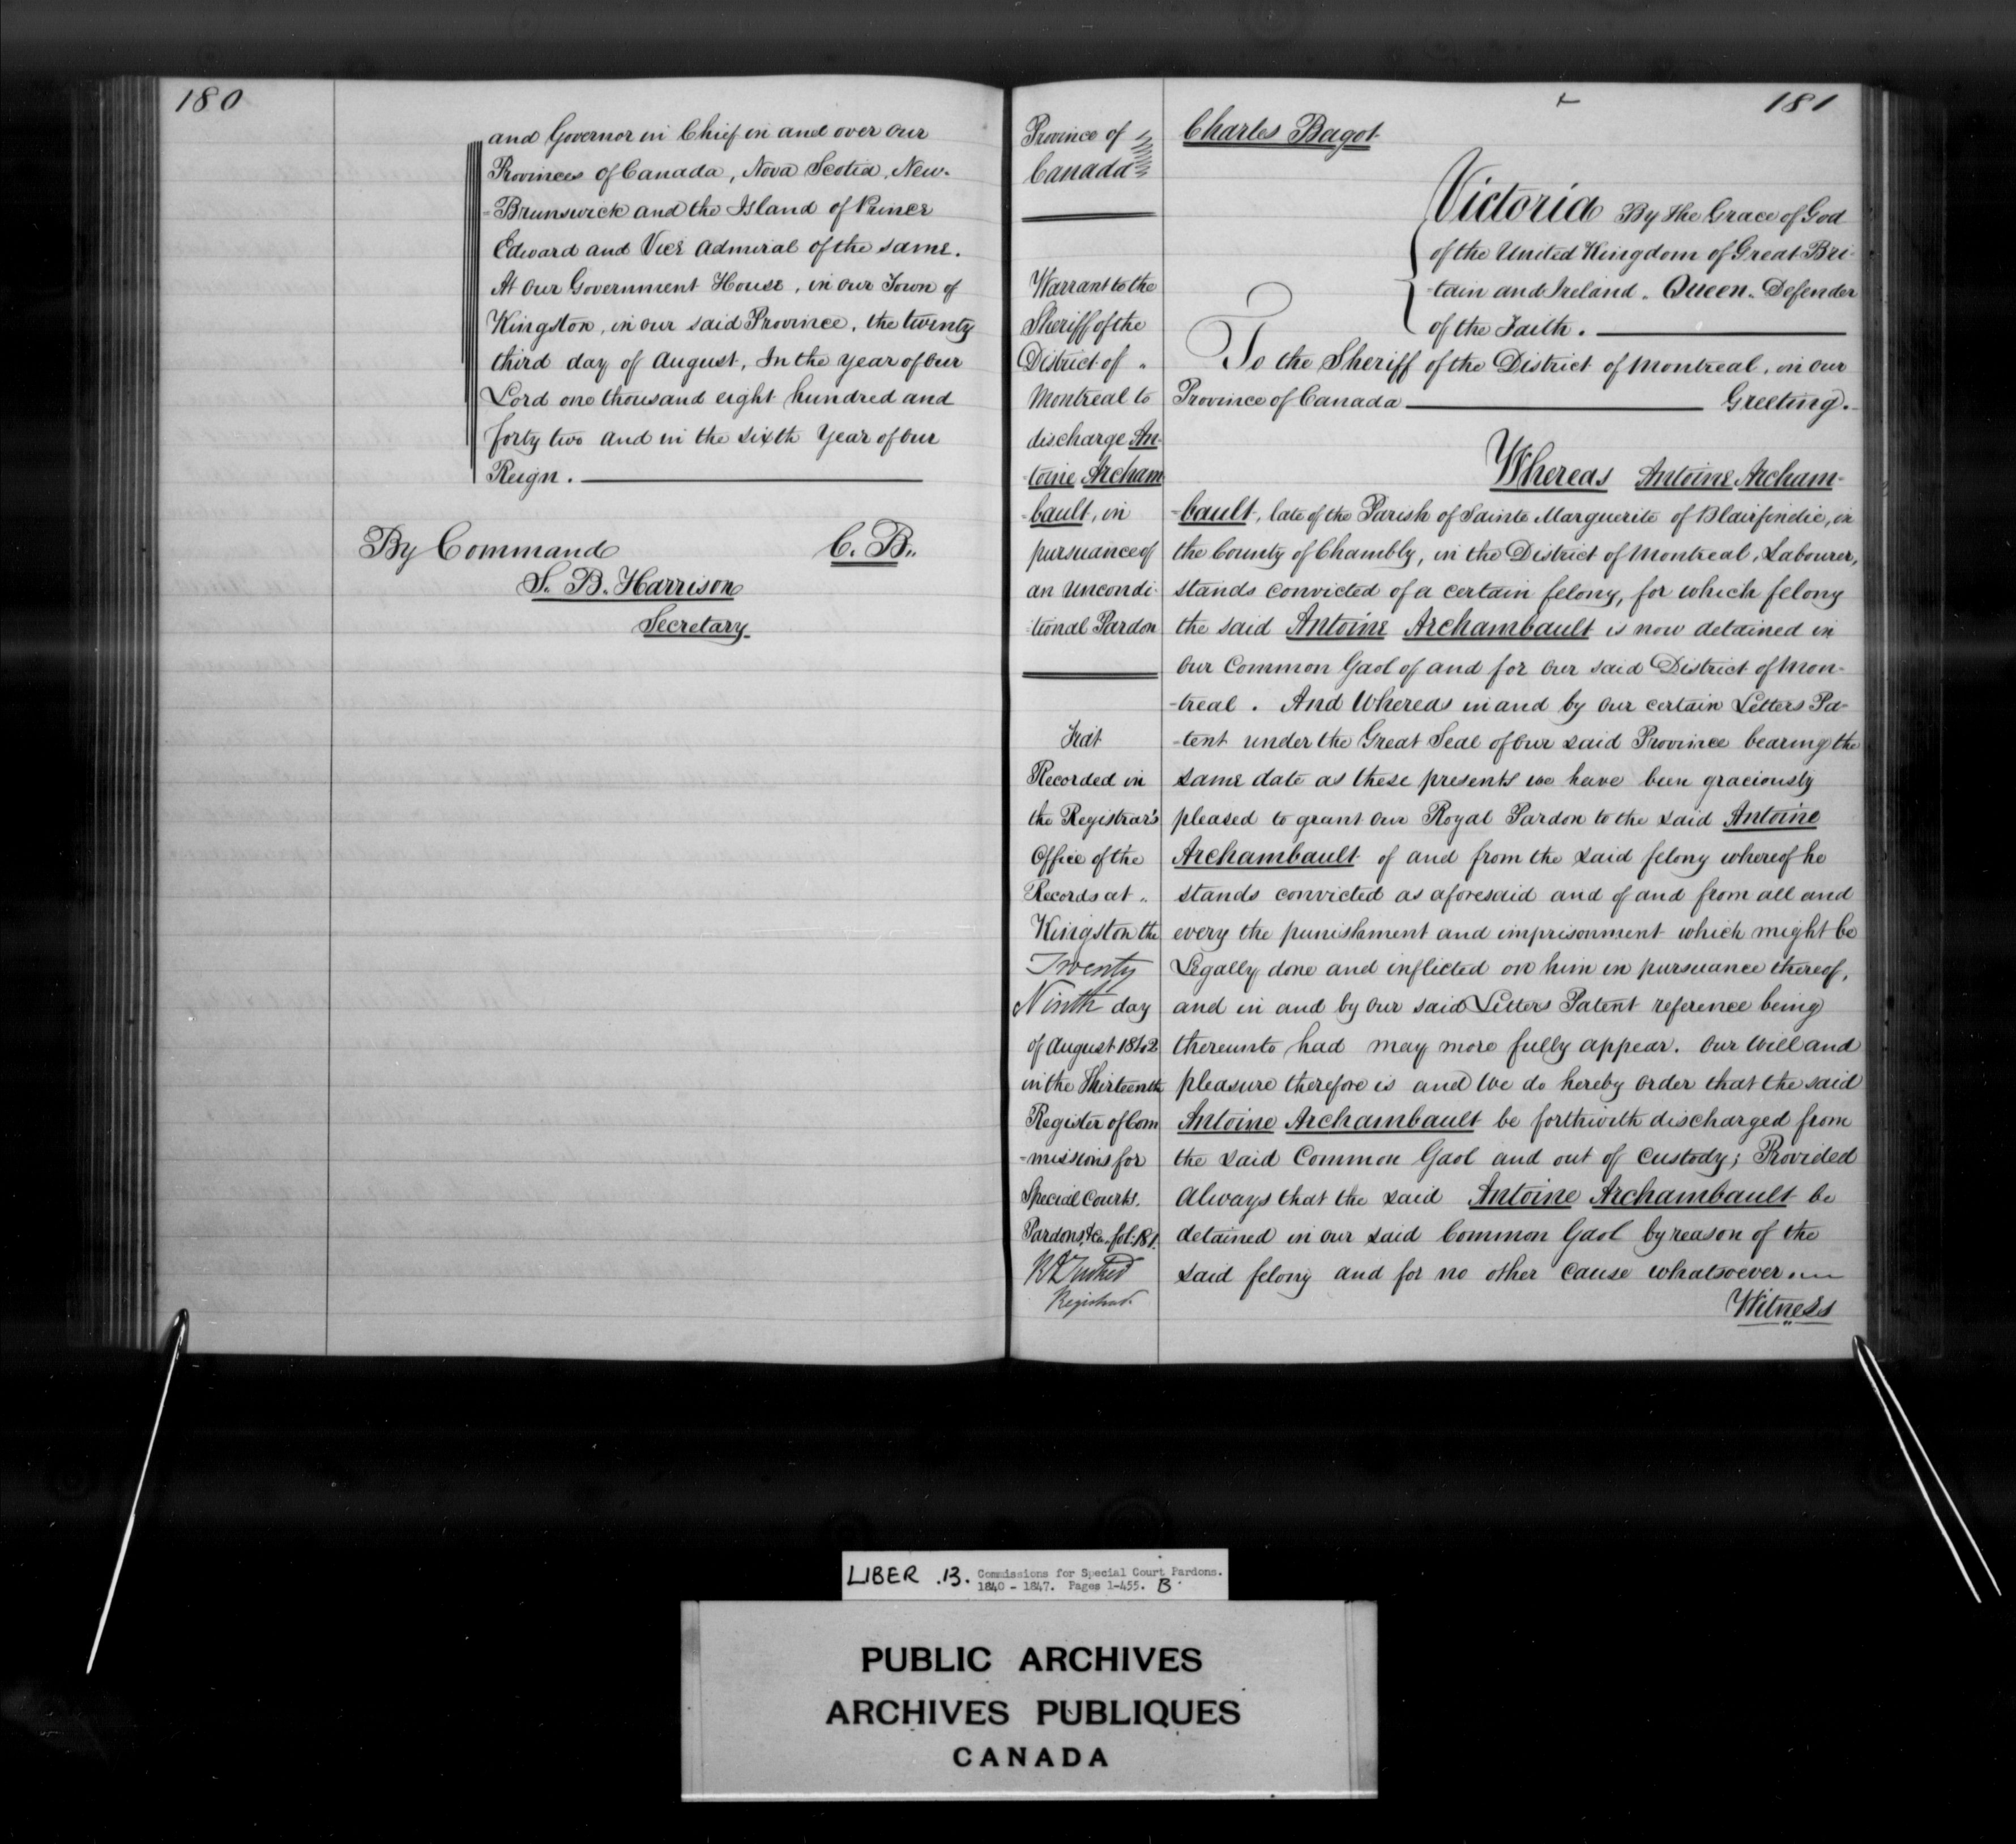 180
and Governor in Chief in and over our
Provinces of Canada, Nova Scotia, New-
-Brunswick and the Island of Prince
Edward and Vice Admiral of the same.
At our Government House, in our Town of
Kingston, in our said Province, the twenty
third day of August, In the year of Our
Lord one thousand eight hundred and
forty two and in the sixth Year of Our
Reign.
By Command C. B.
S. B. Harrison
Secretary
181
Province of
Canada
Warrant to the
Sheriff of the
District of "
Montreal to
discharge An-
-toine Archam
-bault, in
pursuance of
an Uncondi-
-tional Pardon
Fiat
Recorded in
the Registrar's
Office of the
Records at "
Kingston the
Twenty
Ninth day
of August 1842
in the Thirteenth
Register of Com
-missions for
Special Courts.
Pardons, &c. fol. 181.
Registrar.
Charles Bagot
Victoria By the Grace of God
of the United Kingdom of Great Bri-
-tain and Ireland. Queen. Defender
of the Faith.
To the Sheriff of the District of Montreal, in our
Province of Canada Greeting.
Whereas Antoine Archam-
-bault, late of the Parish of Sainte Marguerite of Blairfindie, in
the County of Chambly, in the District of Montreal, Labourer,
stands convicted of a certain felony, for which felony
the said Antoine Archambault is now detained in
our Common Gaol of and for our said District of Mon-
-treal. And Whereas in and by our certain Letters Pa-
-tent under the Great Seal of Our said Province bearing the
same date as these presents we have been graciously
pleased to grant our Royal Pardon to the said Antoine
Archambault of and from the said felony whereof he
stands convicted as aforesaid and of and from all and
every the punishment and imprisonment which might be
Legally done and inflicted on him in pursuance thereof,
and in and by our said Letters Patent reference being
thereunto had may more fully appear. Our Will and
pleasure therefore is and We do hereby order that the said
Antoine Archambault be forthwith discharged from
the said Common Gaol and out of custody; Provided
always that the said Antoine Archambault be
detained in our said Common Gaol by reason of the
said felony and for no other cause whatsoever.
Witness
LIBER .13. Commissions for Special Court Pardons.
1840 - 1847. Pages 1-455. B
PUBLIC ARCHIVES
ARCHIVES PUBLIQUES
CANADA